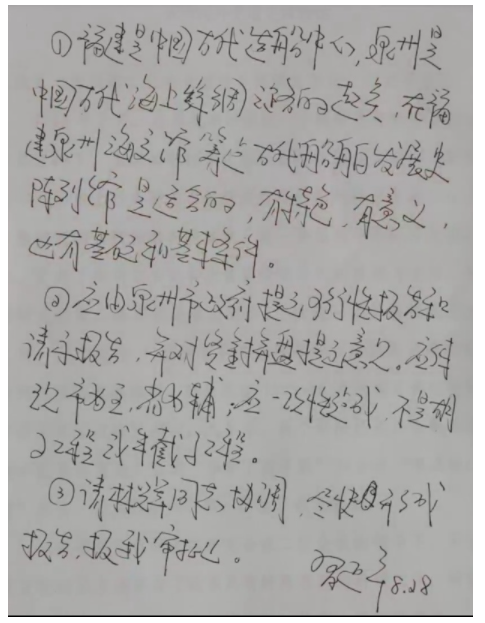 ①福建是中国古代造船中心,泉州是
中国古代海上丝绸之路的起点,在福
建泉州海交馆筹建古代船舶发展史
陈列馆是适合的,有特色,有意义,
也有基础和基本条件。
②应由泉州市政府提出可行性报告和
请示报告,并对资金拼盘提出意见。应
市为主,省为辅;应一次性完成,不是胡
子工程或半截子工程。
③请林 同志协调 尽快 形成
报告,报我审批。
习近平 8.28